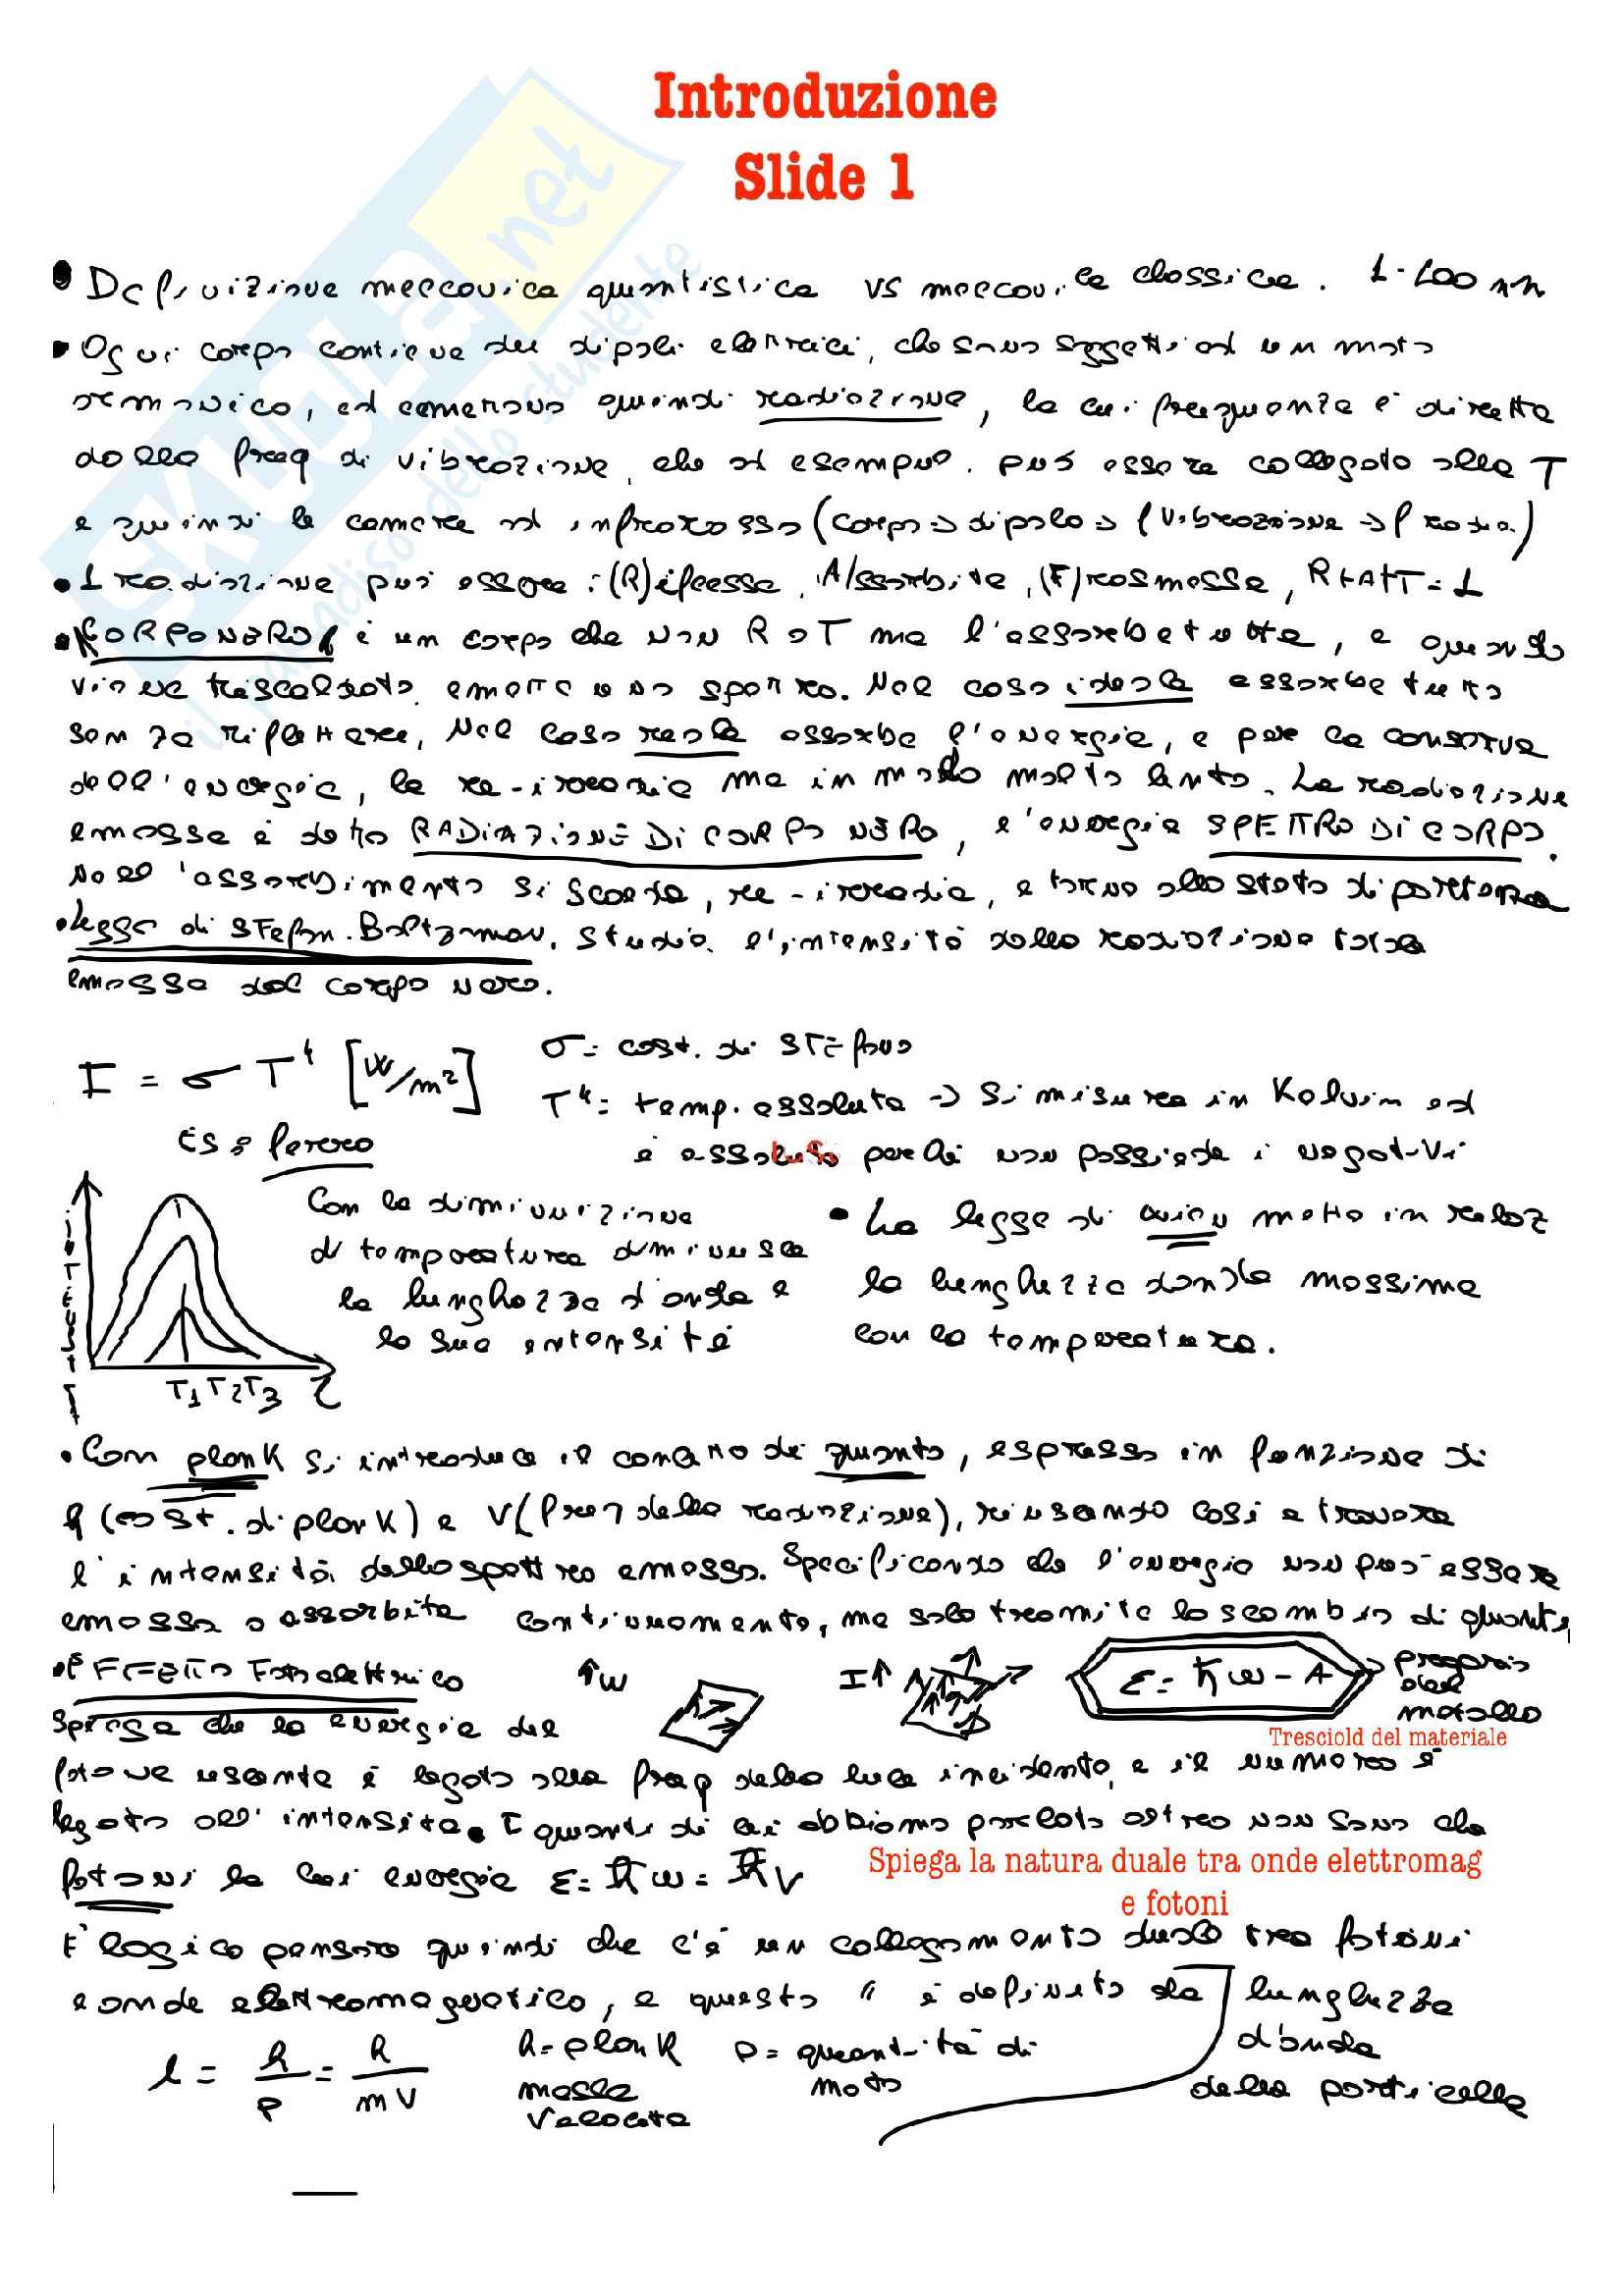 Introduzione
Slide 1
SKUOLA.net
il paradiso dello studente
• Definizione meccanica quantistica vs meccanica classica. 1-100 nm
• Ogni corpo contiene dei dipoli elettrici, che sono soggetti ad un moto
armonico, ed emettono quindi radiazione, la cui frequenza è diretta
dalla freq di vibrazione, che ad esempio può essere collegato alla T
e quindi la camera ad infrarosso (Corpo → dipolo → f vibrazione → f rad.)
• 1 radiazione può essere: (R)iflessa, (A)ssorbita, (T)rasmessa, R+A+T=1
• CORPO NERO è un corpo che non R o T ma l'assorbe tutta, e quando
viene riscaldato emette uno spettro. Nel caso ideale assorbe tutto
senza riflettere, Nel caso reale assorbe l'energia, e per la conserva
dell'energia, la re-irradia ma in modo molto lento. La radiazione
emessa è detta RADIAZIONE DI CORPO NERO, e l'energia SPETTRO DI CORPO.
Nell'assorbimento si scalda, re-irradia, e torna allo stato di partenza
• Legge di Stefan-Boltzman, studia l'intensità della radiazione totale
emessa dal corpo nero.
I = σ T⁴ [W/m²] σ = cost. di STEfano
T⁴ = temp. assoluta → Si misura in Kelvin ed
è assoluta perché non possiede i negativi
ES: ferro
Con la diminuzione
di temperatura diminuisce
la lunghezza d'onda e
la sua intensità
T1 T2 T3
• La legge di Wien mette in relaz
la lunghezza d'onda massima
con la temperatura.
• Con plank si introduce il concetto di quanto, espresso in funzione di
h (cost. di plank) e ν (freq della radiazione), riusando così a trovare
l'intensità dello spettro emesso. Specificando che l'energia non può essere
emessa o assorbita continuamente, ma solo tramite lo scambio di quanti
• EFFETTO Fotoelettrico ↑w I↑ E = ħw - A → proprio del metallo
Tresciold del materiale
Spiega che la energia del
fotone uscente è legata alla freq della luce incidente, e il numero è
legato all'intensità. I quanti di cui abbiamo parlato altro non sono che
fotoni la cui energia E = ħw = hν
Spiega la natura duale tra onde elettromag
e fotoni
È logico pensare quindi che c'è un collegamento duale tra fotoni
e onde elettromagnetico, e questo " è definito da lunghezza
d'onda
della particella
l = h/p = h/mv h = plank p = quantità di
moto
massa
Velocità